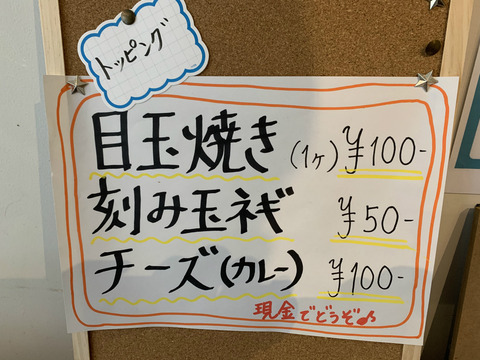 トッピング
目玉焼き(1ヶ) ¥100-
刻み玉ネギ ¥50-
チーズ(カレー) ¥100-
現金でどうぞ♪